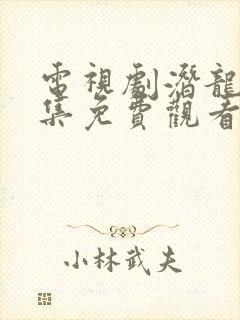 電視劇潛龍
集免費觀看
小林武夫